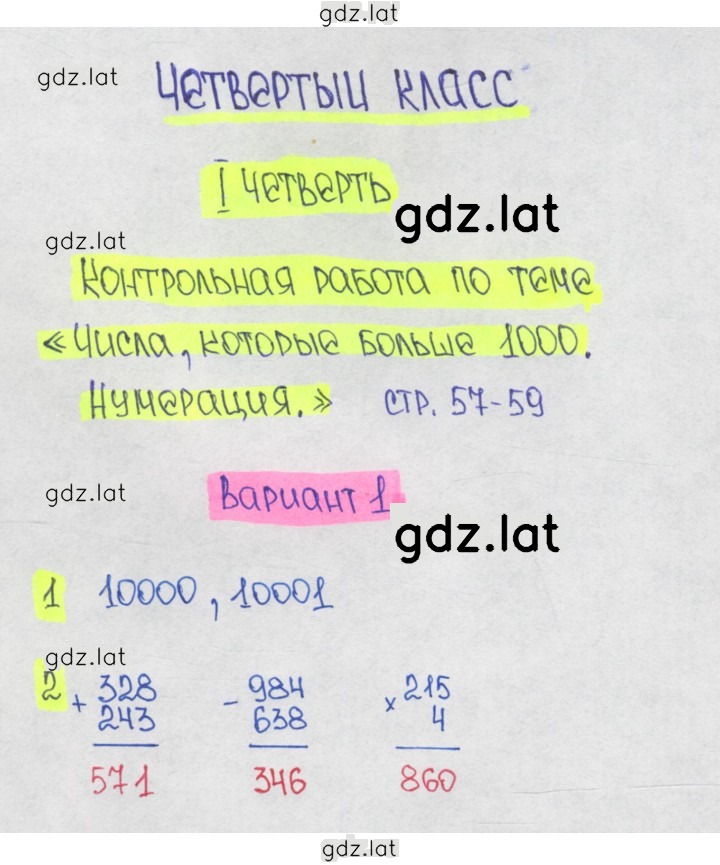 gdz.lat
gdz.lat
Четвертый класс
I четверть
gdz.lat
gdz.lat
Контрольная работа по теме
«Числа, которые больше 1000.
Нумерация.» стр. 57-59
gdz.lat
Вариант 1
gdz.lat
1 10000, 10001
gdz.lat
2 + 328 - 984 × 215
243 638 4
571 346 860
gdz.lat